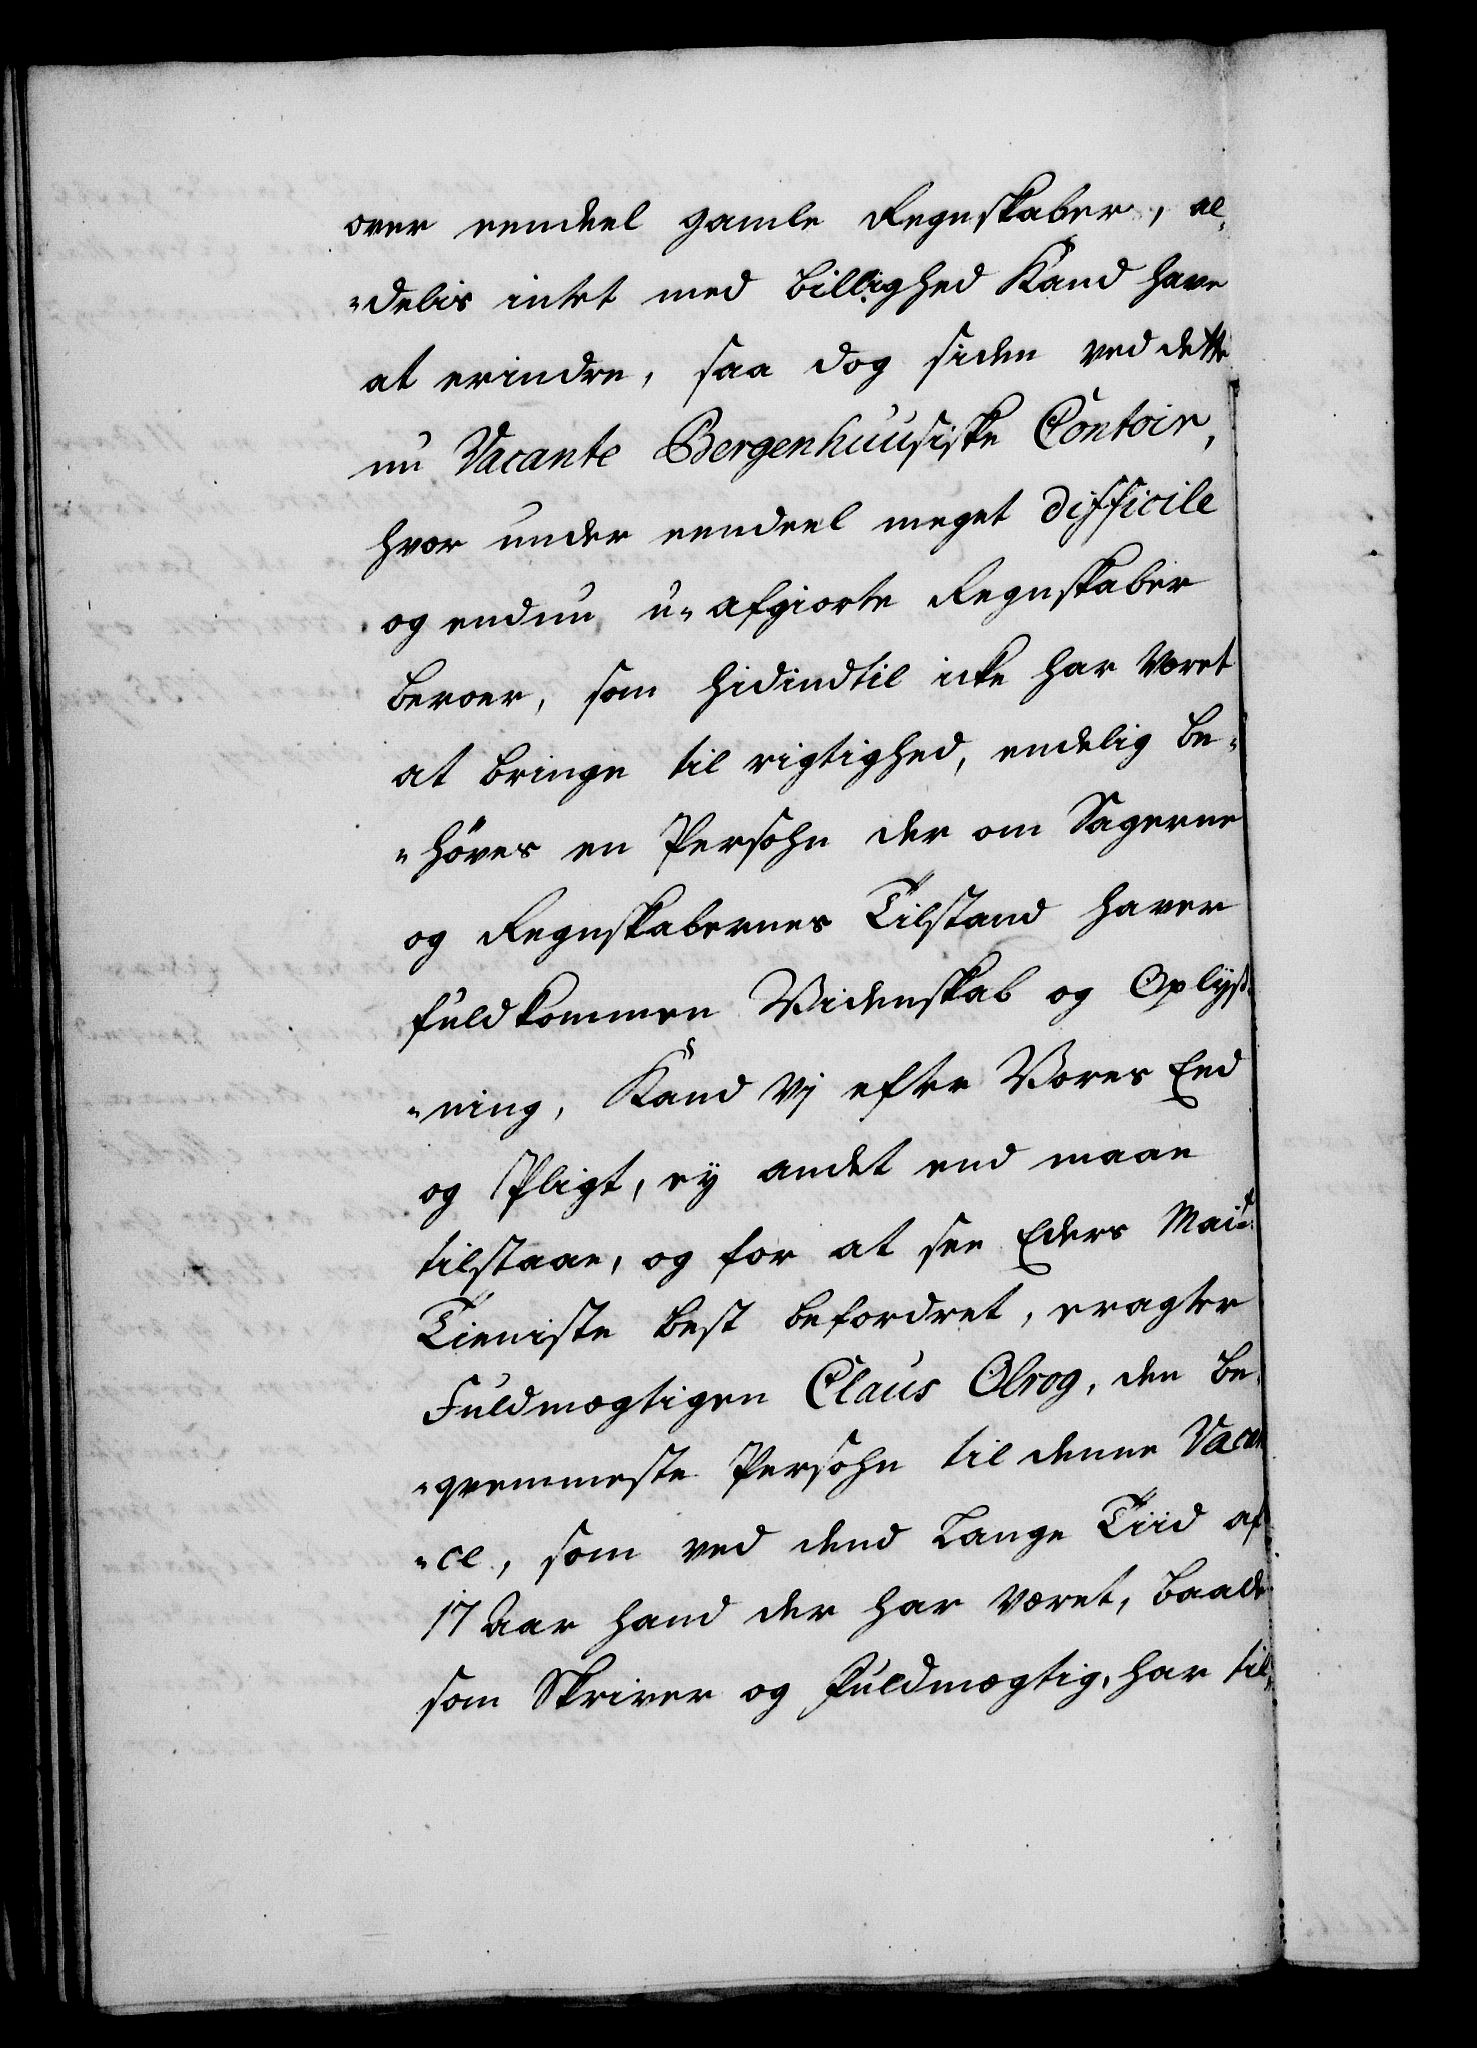 over eendeel gamle Regnskaber, al„
„delis intet med billighed Kand have
at erindre, saa dog siden ved dette
nu Vacante Bergenhuusiske Contoir,
hvor under eendeel meget difficile
og endnu u„afgiorte Regnskaber
beroer, som hidindtil icke har været
at bringe til rigtighed, endelig be„
„höves en Persohn der om Sagerne
og Regnskabernes Tilstand haver
fuldkommen Videnskab og Oplys„
„ning, Kand vj efter Vores Eed
og Pligt, ey andet end maae
tilstaae, og for at see Eders Maits
Tieniste best befordret, eragter
Fuldmægtigen Claus Olrog, den be„
„qvemmeste Persohn til denne Vacan
„ce, som ved dend Lange Tiid af
17 Aar hand der har været, baade
som Skriver og Fuldmægtig, har til„